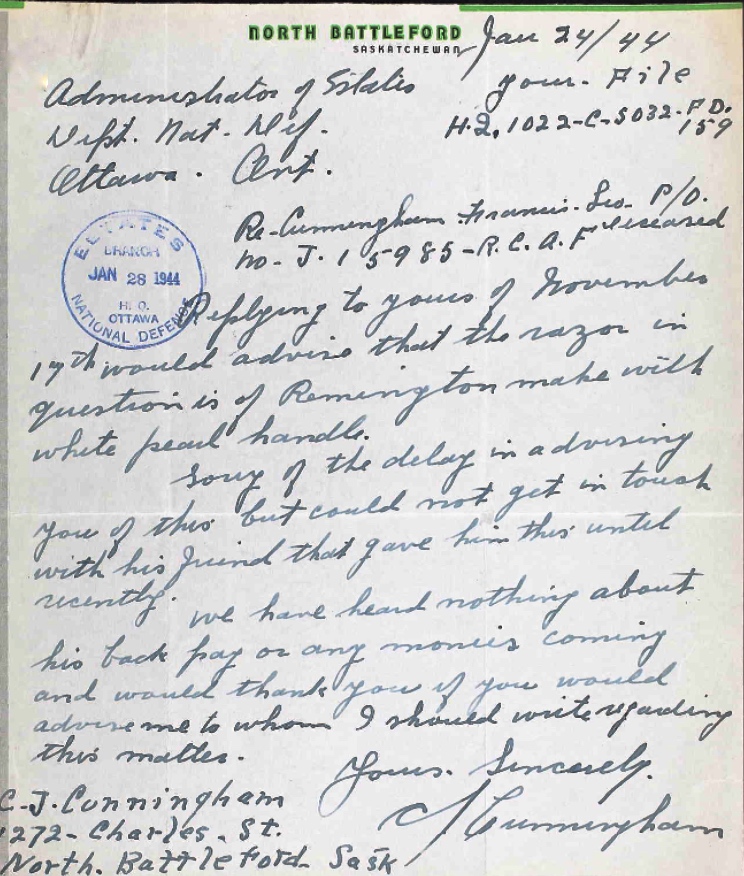 NORTH BATTLEFORD
SASKATCHEWAN
Jan 24/44
Administrator of Estates
your. File
Dept. Nat. Def.
H.Q. 1022-C-5032-P.D.
159
Ottawa. Ont.
Re-Cunningham Francis. Leo. P/O.
deceased
no-J. 15985-R.C.A.F
ESTATES
BRANCH
JAN 28 1944
H.Q.
OTTAWA
NATIONAL DEFENSE
Replying to yours of November
17th would advise that the razor in
question is of Remington make with
white pearl handle.
Sorry of the delay in advising
you of this but could not get in touch
with his friend that gave him this until
recently.
we have heard nothing about
his back pay or any monies coming
and would thank you if you would
advise me to whom I should write regarding
this matter.
Yours. Sincerely.
CJ Cunningham
C.J. Cunningham
1272-Charles. St.
North. Battleford Sask